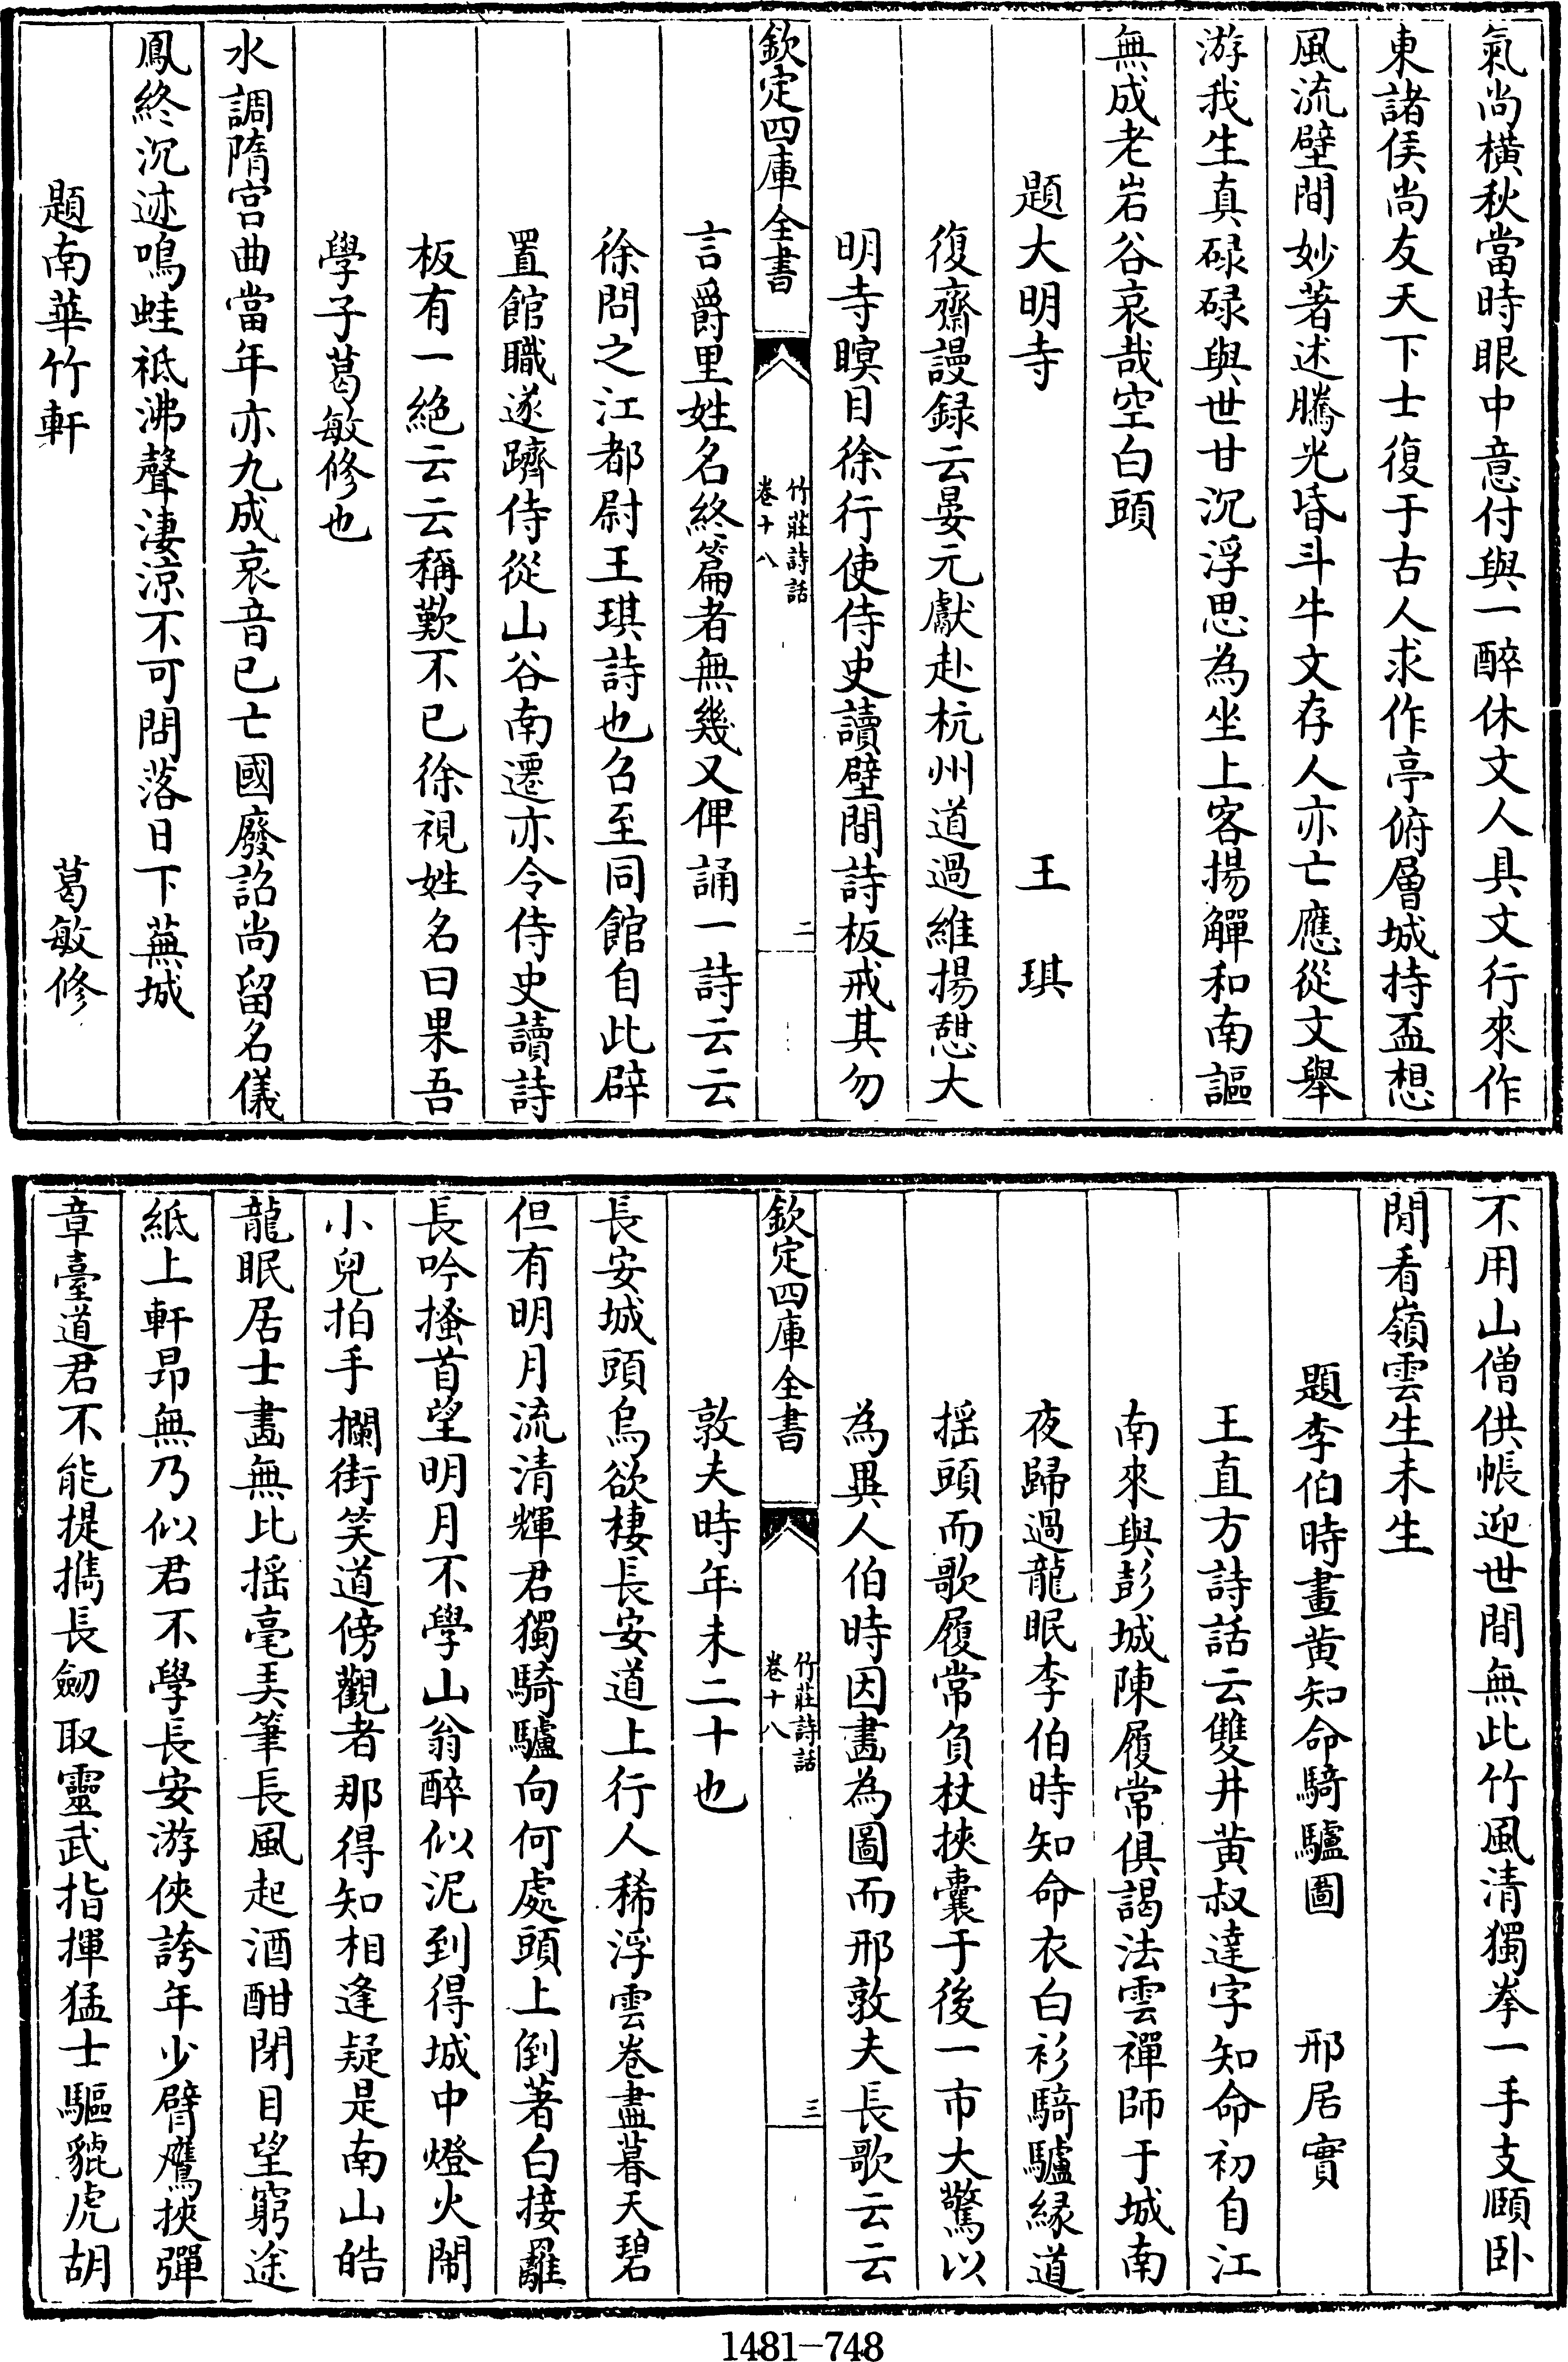 氣尚橫秋當時眼中意付與一醉休文人具文行來作
東諸侯尚友天下士復于古人求作亭俯層城持盃想
風流壁間妙著述騰光昏斗牛文存人亦亡應從文舉
游我生真碌碌與世甘沉浮思為坐上客揚觶和南謳
無成老岩谷哀哉空白頭
題大明寺 王琪
復齋謾録云晏元獻赴杭州道過維揚憇大
明寺瞑目徐行使侍史讀壁間詩板戒其勿
欽定四庫全書 竹莊詩話 卷十八 二
言爵里姓名終篇者無幾又俾誦一詩云云
徐問之江都尉王琪詩也召至同館自此辟
置館職遂躋侍從山谷南遷亦令侍史讀詩
板有一絶云云稱歎不已徐視姓名曰果吾
學子葛敏修也
水調隋宫曲當年亦九成哀音已亡國廢詔尚留名儀
鳳終沉迹鳴蛙祗沸聲淒涼不可問落日下蕪城
題南華竹軒 葛敏修
不用山僧供帳迎世間無此竹風清獨拳一手支頤卧
閒看嶺雲生未生
題李伯時畫黄知命騎驢圖 邢居實
王直方詩話云雙井黄叔達字知命初自江
南來與彭城陳履常俱謁法雲禪師于城南
夜歸過龍眠李伯時知命衣白衫騎驢緣道
揺頭而歌履常負杖挾囊于後一市大驚以
為異人伯時因畫為圖而邢敦夫長歌云云
欽定四庫全書 竹莊詩話 卷十八 三
敦夫時年未二十也
長安城頭烏欲棲長安道上行人稀浮雲卷盡暮天碧
但有明月流清輝君獨騎驢向何處頭上倒著白接䍦
長吟搔首望明月不學山翁醉似泥到得城中燈火鬧
小兒拍手攔街笑道傍觀者那得知相逢疑是南山皓
龍眠居士畫無比揺毫弄筆長風起酒酣閉目望窮途
紙上軒昂無乃似君不學長安游俠誇年少臂鷹挾彈
章臺道君不能提擕長劒取靈武指揮猛士驅貔虎胡
1481-748